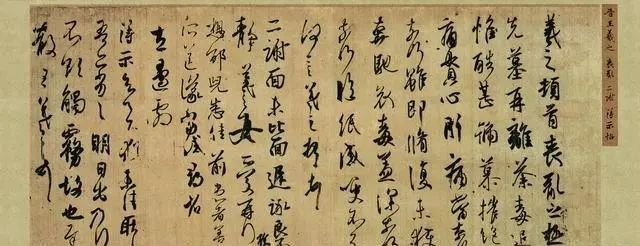 晋王羲之 喪亂 二謝 得示帖
羲之頓首喪亂之極
先墓再離荼毒追
惟酷甚號慕摧絕
痛貫心肝痛當奈
奈何雖即脩復未獲
奔馳哀毒益深奈
奈何臨紙感哽不知
何言羲之頓首
二謝面未比面遲詠良
靜羲之女愛再拜
想邵兒悉佳前患者善
所送議當試尋省
左邊劇
得示知足下猶未佳耿
吾亦劣劣明日出乃行
不欲觸霧故也遲
散王羲之頓首